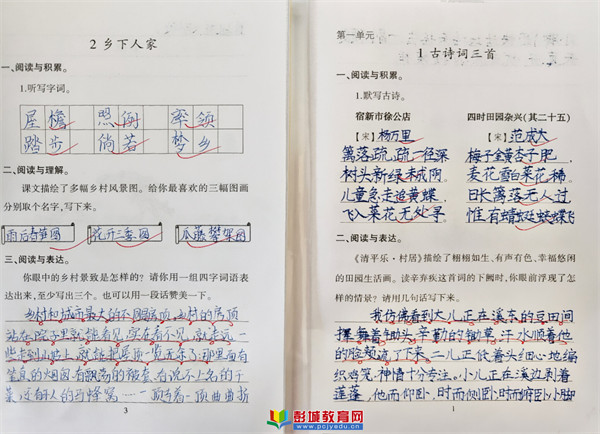 2 乡下人家
一、阅读与积累。
1.听写字词。
屋檐 照例 率领
踏步 倘若 梦乡
二、阅读与理解。
课文描绘了多幅乡村风景图。给你最喜欢的三幅图画
分别取个名字,写下来。
雨后春笋图 花开三季图 瓜藤攀架图
三、阅读与表达。
你眼中的乡村景致是怎样的?请你用一组四字词语表
达出来,至少写出三个。也可以用一段话赞美一下。
乡村和城市最大的不同是房顶,乡村的房顶
站在院子里就能看见,实在看不见,就多走一
些走到山坡上,就能把房顶一览无余了。那里面有
3
第一单元
1 古诗词三首
一、阅读与积累。
1.默写古诗。
宿新市徐公店 四时田园杂兴(其二十五)
[宋] 杨万里 [宋] 范成大
篱落疏疏一径深 梅子金黄杏子肥
树头新绿未成阴 麦花雪白菜花稀
儿童急走追黄蝶 日长篱落无人过
飞入菜花无处寻 惟有蜻蜓蛱蝶飞
二、阅读与表达。
《清平乐·村居》描绘了栩栩如生、有声有色、幸福悠闲
的田园生活画。读辛弃疾这首词的下阕时,你眼前浮现了怎
样的情景?请用几句话写下来。
我仿佛看到大儿正在溪东的豆田间
挥舞着锄头,辛勤的锄草,汗水顺着他
的脸颊流了下来。二儿正低着头细心地编
织鸡笼,神情十分专注。小儿正在溪边剥着
莲蓬,他而仰卧,时而侧卧,时而俯卧,小脚
1
彭城教育网
www.pcjyedu.cn